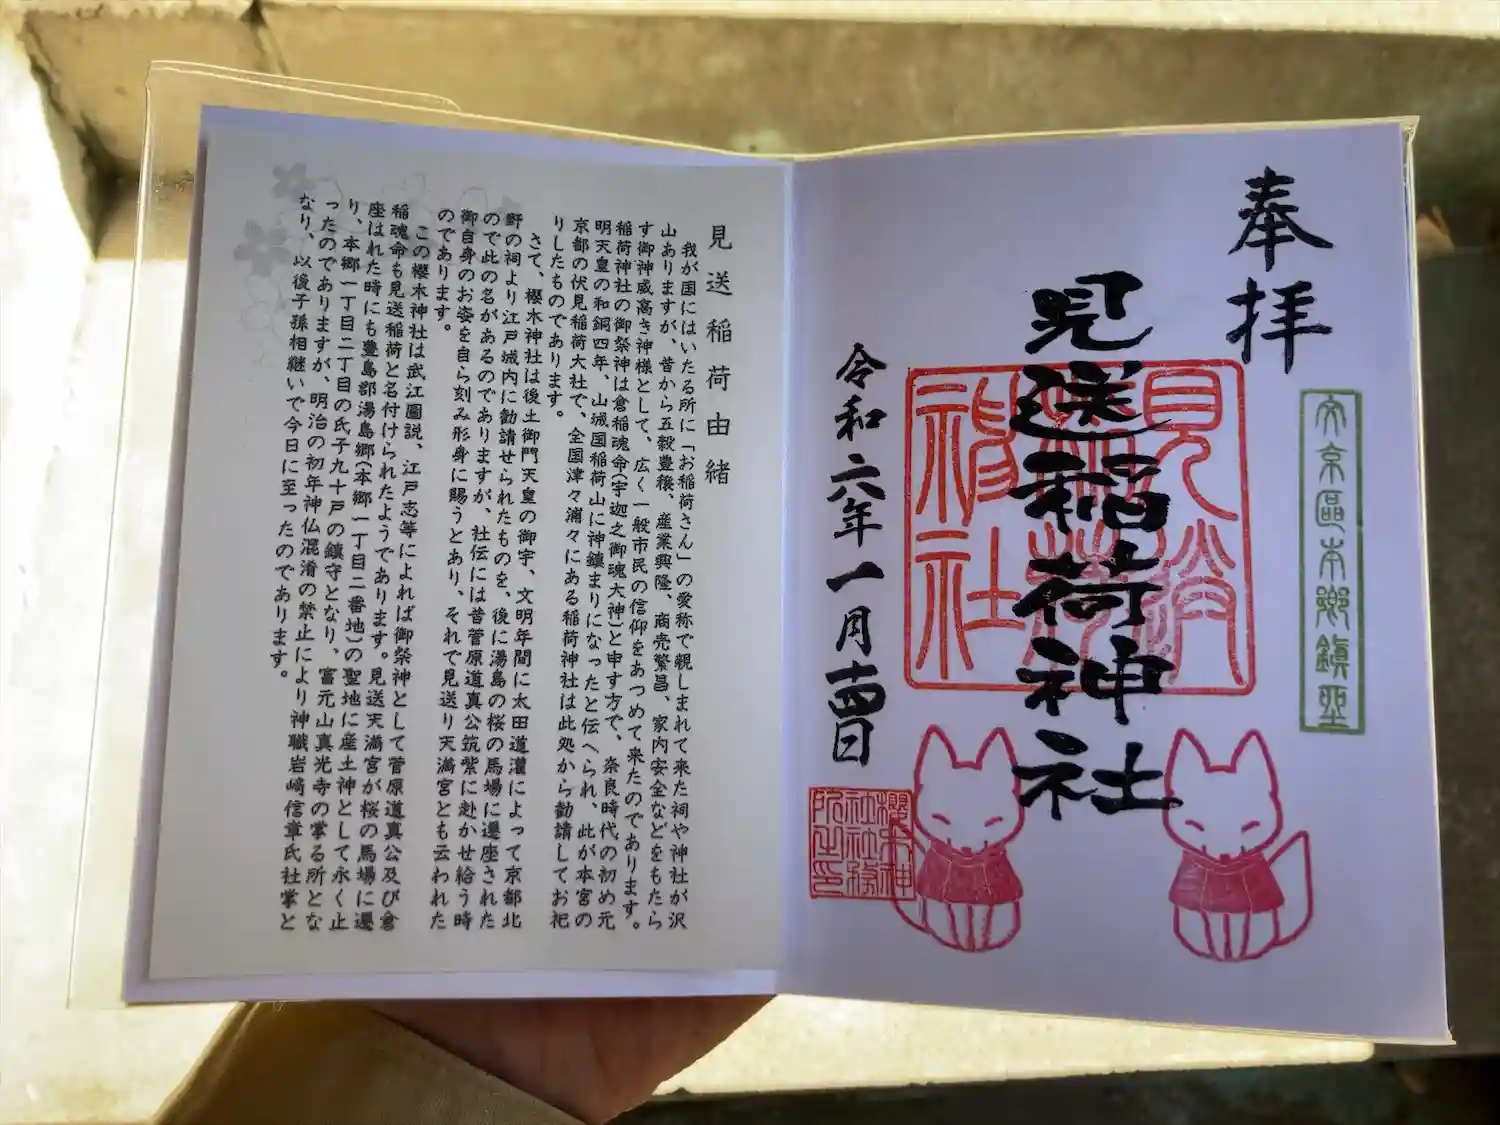 奉拝
文京區本郷鎮座
見送稲荷神社
見送稲荷神社
令和六年一月十四日
櫻木神
社社務
所之印
見送稲荷由緒
我が国にはいたる所に「お稲荷さん」の愛称で親しまれて来た祠や神社が沢
山ありますが、昔から五穀豊穣、産業興隆、商売繁昌、家内安全などをもたら
す御神威高き神様として、広く一般市民の信仰をあつめて来たのであります。
稲荷神社の御祭神は倉稲魂命(宇迦之御魂大神)と申す方で、奈良時代の初め元
明天皇の和銅四年、山城国稲荷山に神鎮まりになったと伝へられ、此が本宮の
京都の伏見稲荷大社で、全国津々浦々にある稲荷神社は此処から勧請してお祀
りしたものであります。
さて、櫻木神社は後土御門天皇の御宇、文明年間に太田道灌によって京都北
野の祠より江戸城内に勧請せられたものを、後に湯島の桜の馬場に遷座された
ので此の名があるのでありますが、社伝には昔菅原道真公筑紫に赴かせ給う時
御自身のお姿を自ら刻み形身に賜うとあり、それで見送り天満宮とも云われた
のであります。
この櫻木神社は武江圖説、江戸志等によれば御祭神として菅原道真公及び倉
稲魂命も見送稲荷と名付けられたようであります。見送天満宮が桜の馬場に遷
座はれた時にも豊島郡湯島郷(本郷一丁目二番地)の聖地に産土神として永く止
り、本郷一丁目二丁目の氏子九十戸の鎮守となり、富元山真光寺の掌る所とな
ったのでありますが、明治の初年神仏混淆の禁止により神職岩﨑信章氏社掌と
なり、以後子孫相継いで今日に至ったのであります。